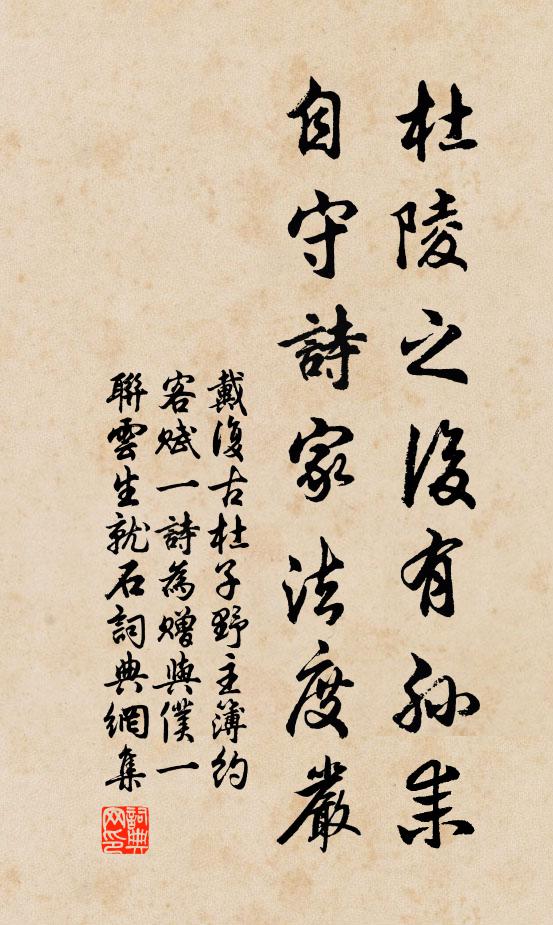 杜陵之後有孫耒
自守詩家法度嚴
戴復古杜子野主簿約
客賦一詩為贈與僕一
聯雲生就石詞典網集
詞典网印